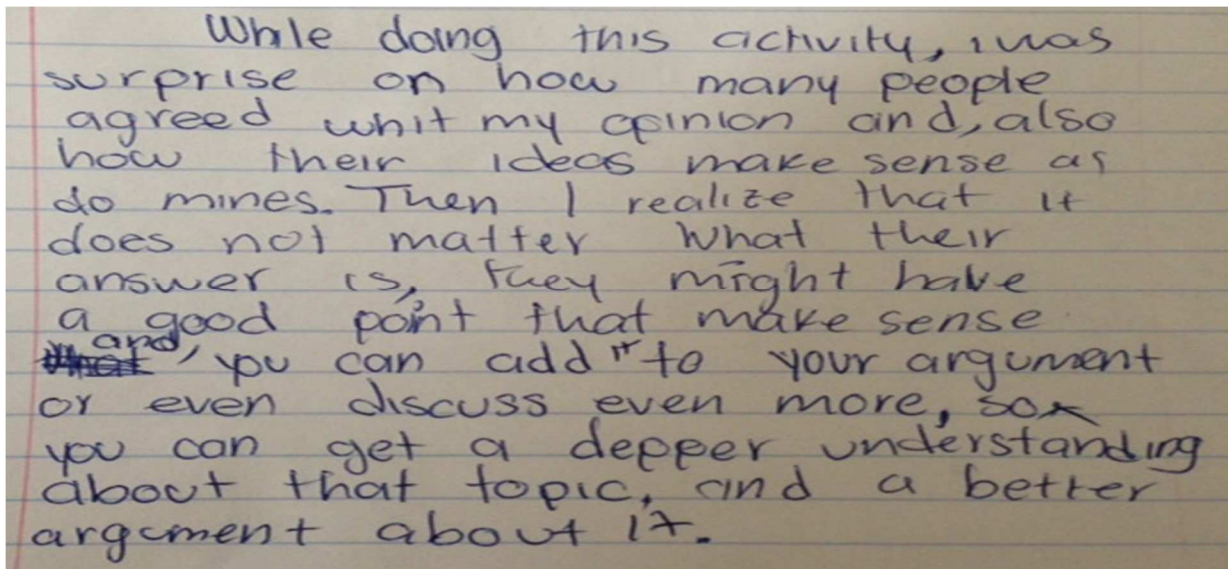 While doing this activity, i was
surprise on how many people
agreed whit my opinion and, also
how their ideas make sense as
do mines. Then I realize that it
does not matter what their
answer is, they might have
a good point that make sense
and, you can add it to your argument
or even discuss even more, so
you can get a depper understanding
about that topic, and a better
argument about it.